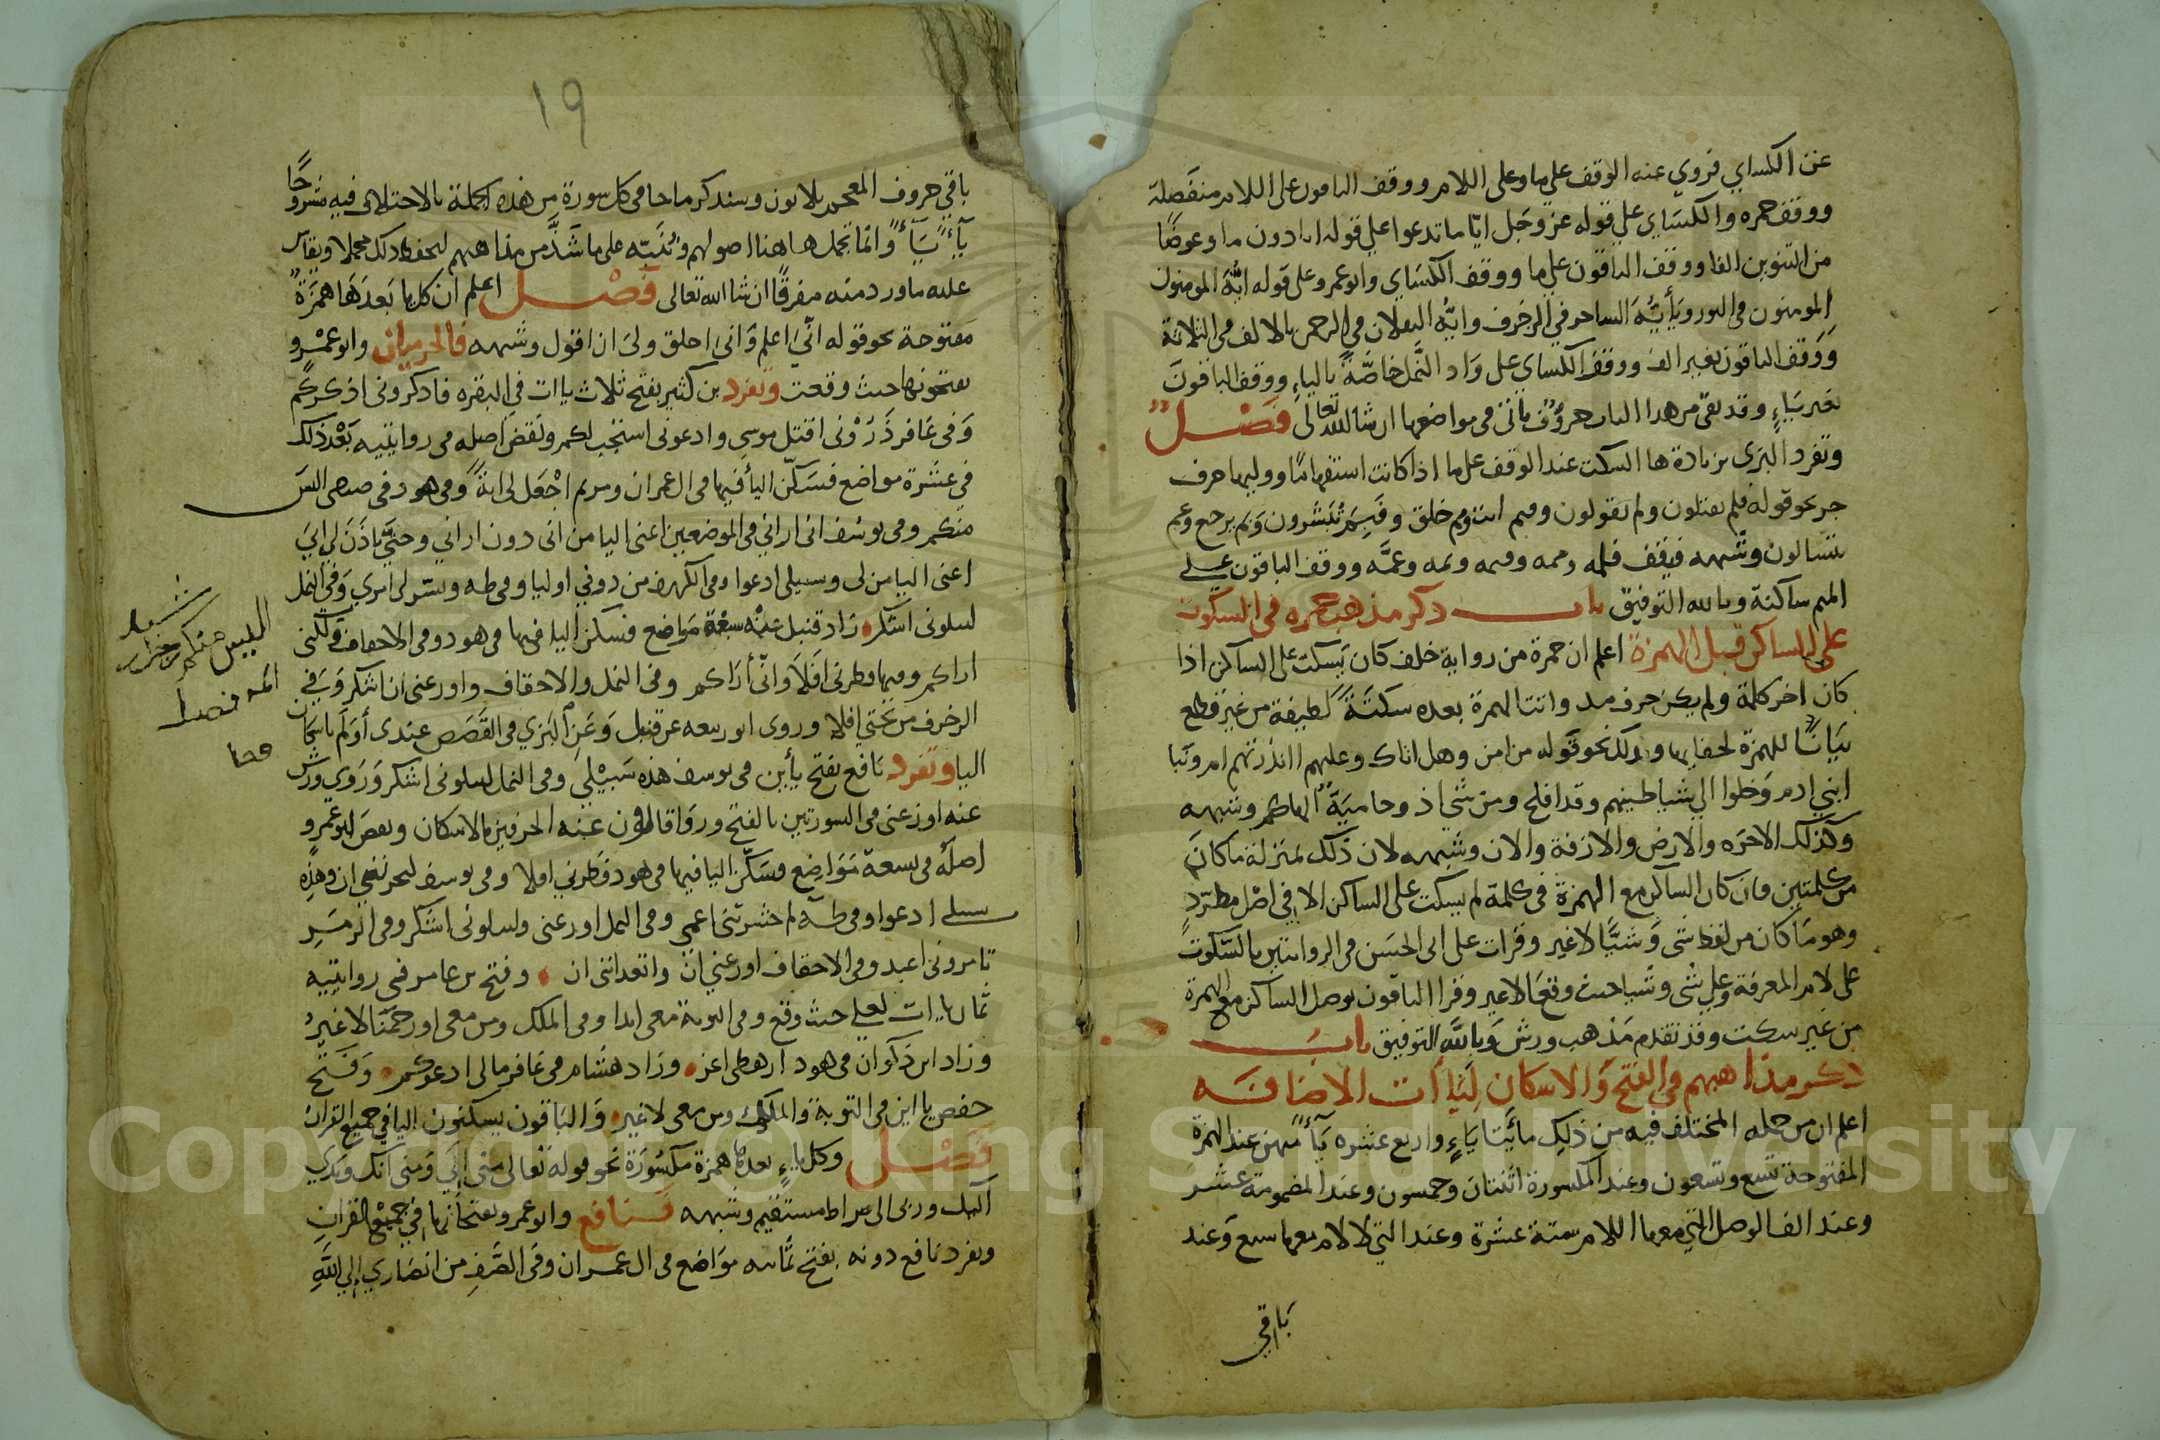 عن الكساي فروي عنه الوقف على ما وعلى اللام ووقف الباقون على اللام منفصلة
ووقف حمزه والكساي علي قوله عز وجل ايا ما تدعوا علي قوله ايا دون ما وعوضا
من التنوين الفا ووقف الباقون علي ما ووقف الكساي وابو عمرو على قوله ايه المومنون
المومنون في النور ويأيه الساحر في الزخرف وايه الثقلان في الرحمن بالالف في الثلاثة
ووقف الباقون بغير الف ووقف الكساي على واد النمل خاصة بالياء ووقف الباقون
بغير ياء وقد بقي من هذا الباب حروف ياتي في مواضعها ان شا الله تعالى فصل
وتفرد البزي بزيادة ها السكت عند الوقف على ما اذا كانت استفهاما ووليها حرف
جر نحو قوله فلم تقتلون ولم تقولون وفيم انت ومم خلق وفبم تبشرون وبم يرجع وعم
يتسالون وشبهه فيقف فلمه وممه وفيمه وبمه وعمه ووقف الباقون على
الميم ساكنة وبالله التوفيق باب ذكر مذهب حمزه في السكوت
على الساكن قبل الهمزة اعلم ان حمزة من رواية خلف كان يسكت على الساكن اذا
كان اخر كلمة ولم يكن حرف مد واتت الهمزة بعده سكتة لطيفة من غير قطع
بيانا للهمزة لخفايها وذلك نحو قوله من امن وهل اتاك وعليهم اانذرتهم ام ونبا
ابني ادم وخلوا الي شياطينهم وقد افلح ومن شي اذ وحامية الهاكم وشبهه
وكذلك الاخره والارض والازفة والان وشبهه لان ذلك بمنزلة ما كان
من كلمتين فان كان الساكن مع الهمزة في كلمة لم يسكت على الساكن الا في اصل مطرد
وهو ما كان من لفظ شي وشيا لا غير وقرات على ابي الحسن في الروايتين بالسكوت
على لام المعرفة وعلى شي وشيا حيث وقعا لا غير وقرا الباقون بوصل الساكن مع الهمزة
من غير سكت وقد تقدم مذهب ورش وبالله التوفيق باب
ذكر مذاهبهم في الفتح والاسكان لياات الاضافه
اعلم ان من جمله المختلف فيه من ذلك مائيتا ياء واربع عشره ياء منهن عند الهمزة
المفتوحة تسع وتسعون وعند المكسورة اثنتان وخمسون وعند المضمومة عشر
وعند الف الوصل التي معها اللام ستة عشرة وعند التي لا لام معها سبع وعند
باقي
١٩
باقي حروف المعجم ثلاثون وسنذكر ما جا في كل سورة من هذه الجملة بالاختلاف فيه مشروحا
ياء ياء وانما نجمل هاهنا اصولهم وننبه على ما شذ من مذاهبهم ليحفظ ذلك مجملا ويقاس
عليه ما ورد منه مفرقا ان شا الله تعالى فصل اعلم ان كل يا بعدها همزة
مفتوحة نحو قوله اني اعلم واني اخلق ولي ان اقول وشبهه فالحرميان وابو عمرو
يفتحونها حيث وقعت وتفرد بن كثير بفتح ثلاث ياات في البقره فاذكروني اذكركم
وفي غافر ذروني اقتل موسي وادعوني استجب لكم ونقض اصله في روايتيه بعد ذلك
في عشرة مواضع فسكن اليا فيها في ال عمران ومريم اجعل لي اية وفي هود في ضيفي اليس
منكم وفي يوسف اني اراني في الموضعين اعني اليا من اني دون اراني وحتى ياذن لي ابي
اعني اليا من لي وسبيلي ادعوا وفي الكهف من دوني اوليا وفي طه ويسر لي امري وفي النمل
ليبلوني اشكر زاد قنبل عنه سبعة مواضع فسكن اليا فيها في هود وفي الاحقاف ولكني
اراكم وفيها فطرني افلا واني اراكم وفي النمل والاحقاف واوزعني ان اشكر وفي
الزخرف من تحتي افلا وروى ابو ربيعه عن قنبل وعن البزي في القصص عندي أولم باسكان
اليا وتفرد نافع بفتح يأين في يوسف هذه سبيلي وفي النمل ليبلوني اشكر وروي ورش
عنه اوزعني في السورتين بالفتح وروا قالون عنه الحرفين بالاسكان ونقض ابو عمرو
اصله في تسعة مواضع فسكن اليا فيها في هود فطرني افلا وفي يوسف ليحزنني ان وهذه
سبيلي ادعوا وفي طه لم حشرتني اعمي وفي النمل اوزعني وليبلوني اشكر وفي الزمر
تامروني اعبد وفي الاحقاف اوزعني ان واتعدانني ان وفتح بن عامر في روايتيه
ثمان ياات لعلي حيث وقع وفي التوبة معي ابدا وفي الملك ومن معي اورحمنا لا غير
وزاد ابن ذكوان في هود ارهطي اعز وزاد هشام في غافر مالي ادعوكم وفتح
حفص يااين في التوبة والملك ومن معي لا غير والباقون يسكنون اليا في جميع القران
فصل وكل ياء بعدها همزة مكسورة نحو قوله تعالى مني الي ومني انك ويدي
اليك وربي الى صراط مستقيم وشبهه فنافع وابو عمرو يفتحانها في جميع القران
وتفرد نافع دونه بفتح ثمانيه مواضع في ال عمران وفي الصف من انصاري إلي الله
اليس منكم
Copyright © King Saud University